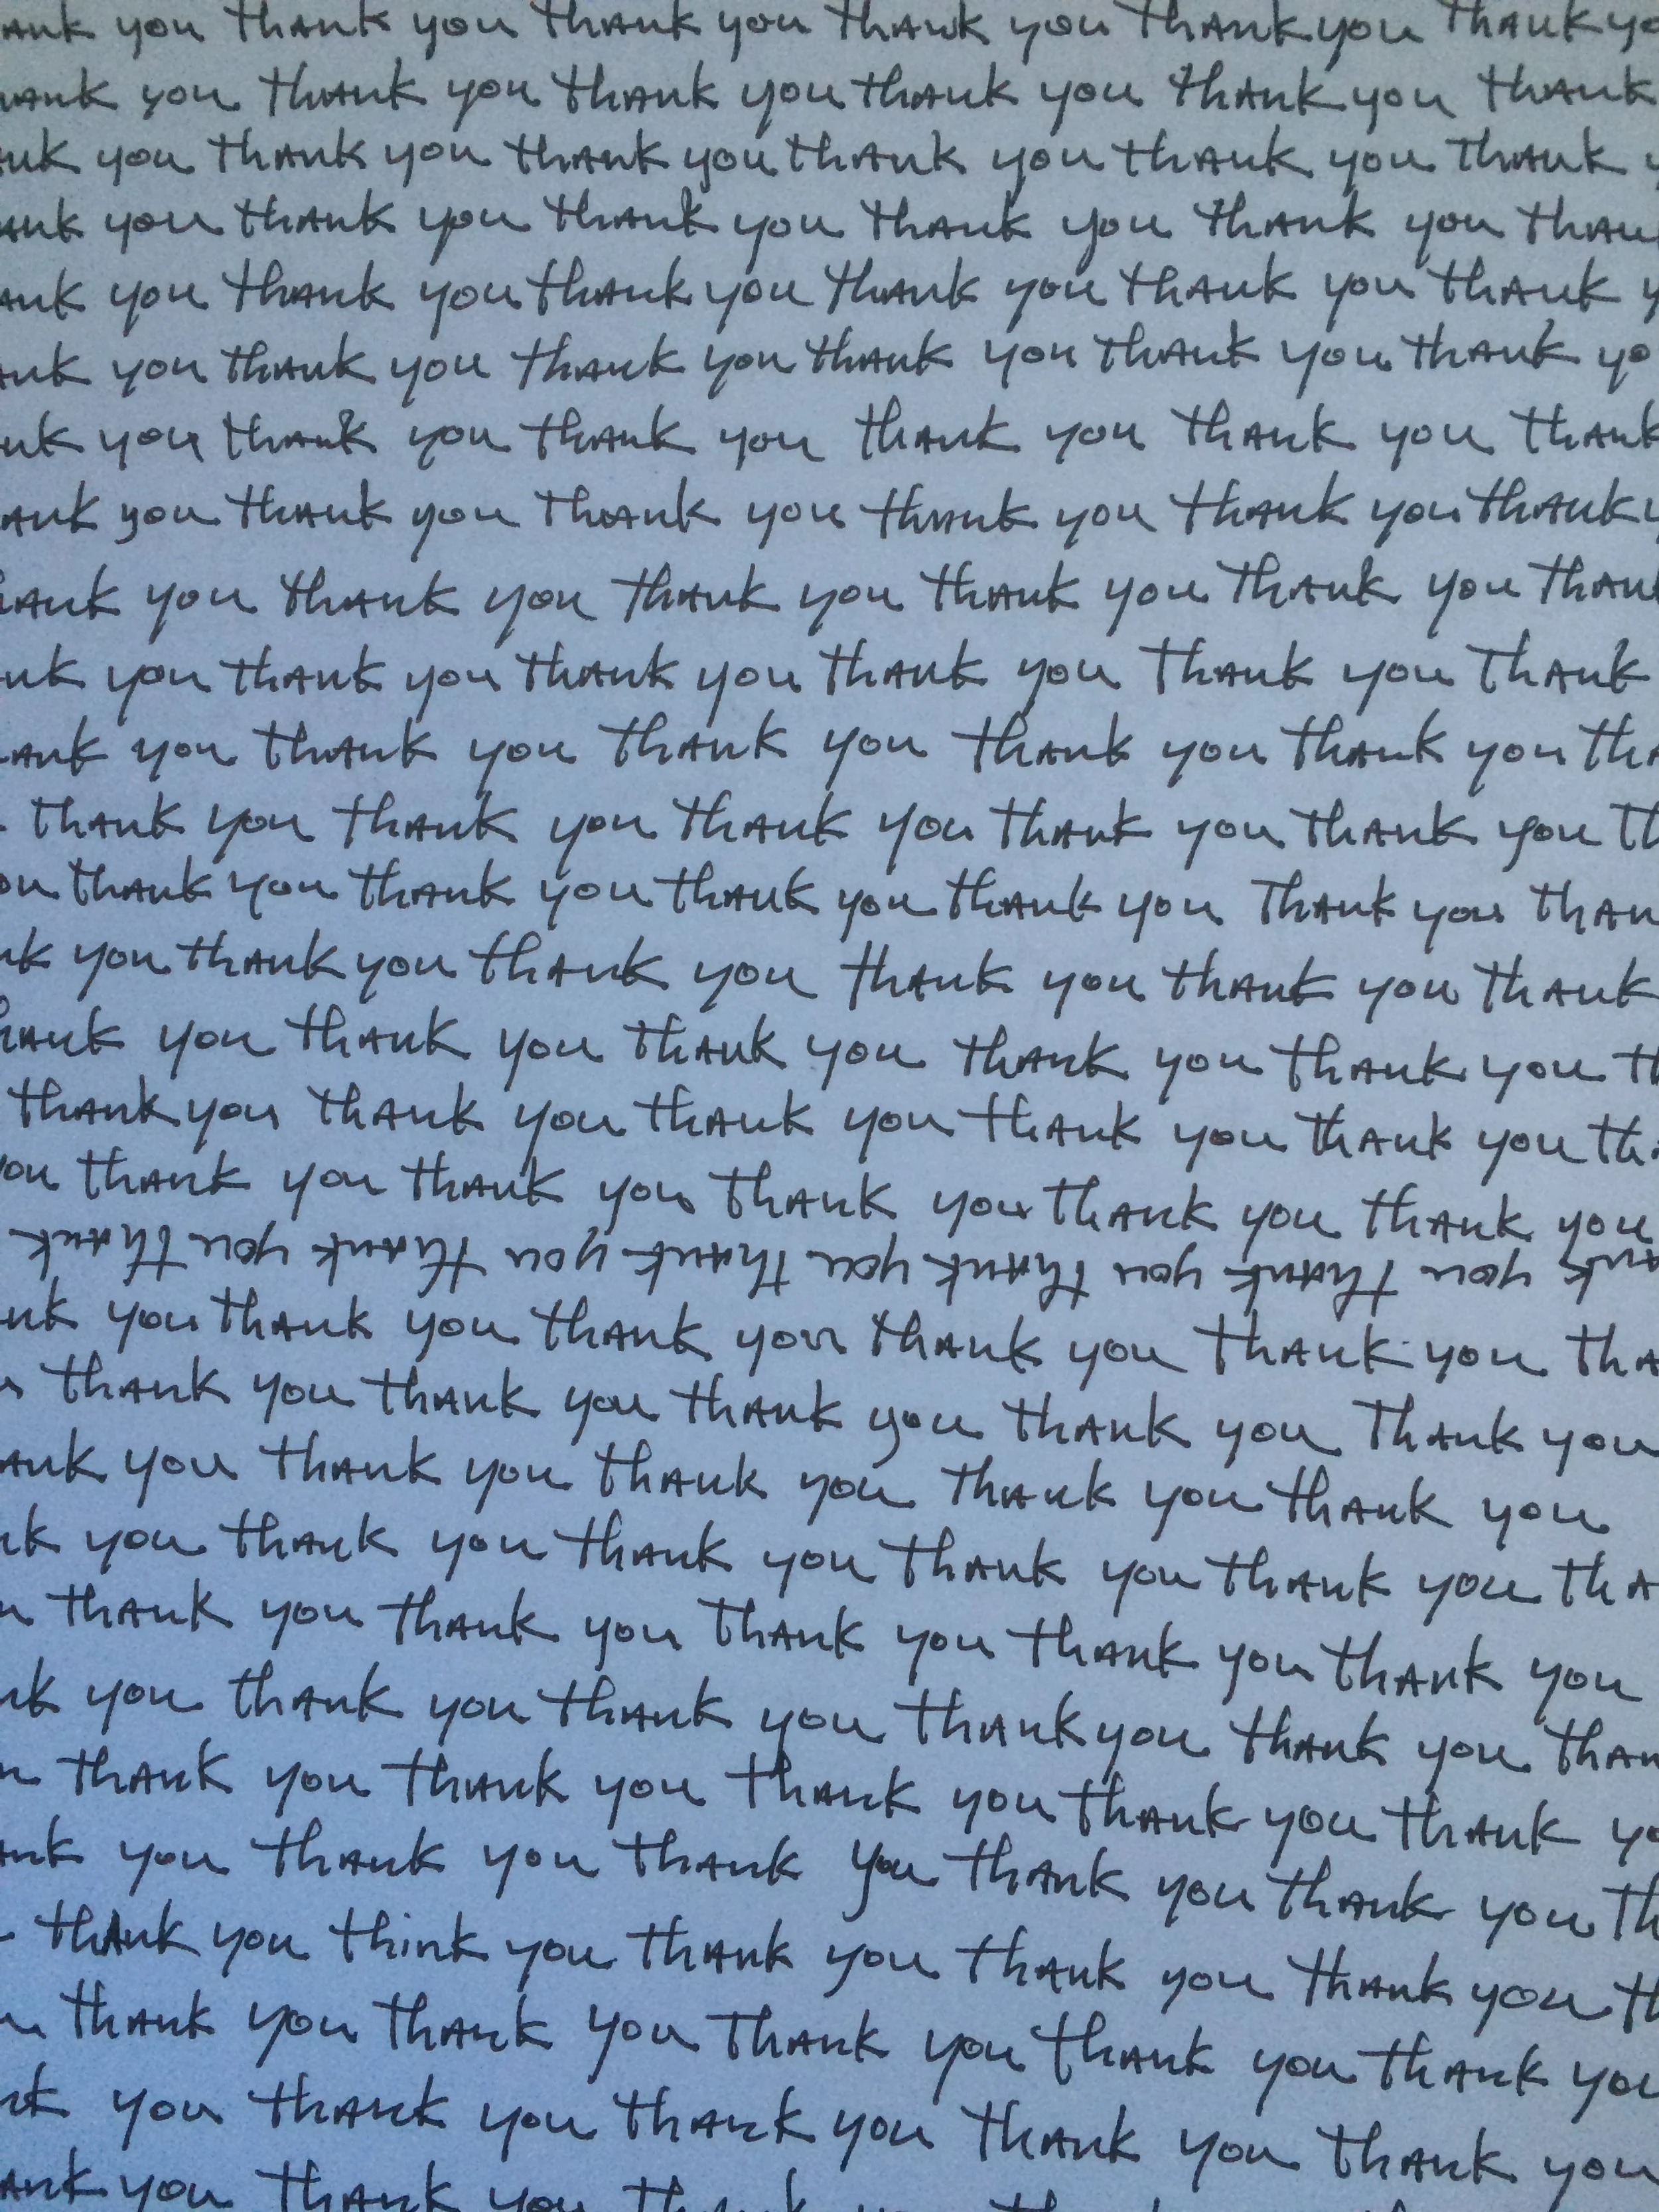 ank you thank you thank you thank you thank you thank yo
hank you thank you thank you thank you thank you thank
nk you thank you thank you thank you thank you thank y
ank you thank you thank you thank you thank you than
ank you thank you thank you thank you thank you thank y
ank you thank you thank you thank you thank you thank yo
nk you thank you thank you thank you thank you thank
ank you thank you thank you thank you thank you thank y
hank you thank you thank you thank you thank you thank
nk you thank you thank you thank you thank you thank
ank you thank you thank you thank you thank you tha
thank you thank you thank you thank you thank you th
ou thank you thank you thank you thank you thank you than
nk you thank you thank you thank you thank you thank
hank you thank you thank you thank you thank you th
thank you thank you thank you thank you thank you tha
you thank you thank you thank you thank you thank you
ank you thank you thank you thank you thank you thank
nk you thank you thank you thank you thank you tha
thank you thank you thank you thank you thank you
ank you thank you thank you thank you thank you
nk you thank you thank you thank you thank you tha
u thank you thank you thank you thank you thank you
nk you thank you thank you thank you thank you than
u thank you thank you thank you thank you thank yo
ank you thank you thank you thank you thank you th
thank you think you thank you thank you thank you th
u thank you thank you thank you thank you thank you
nk you thank you thank you thank you thank you
ank you thank you